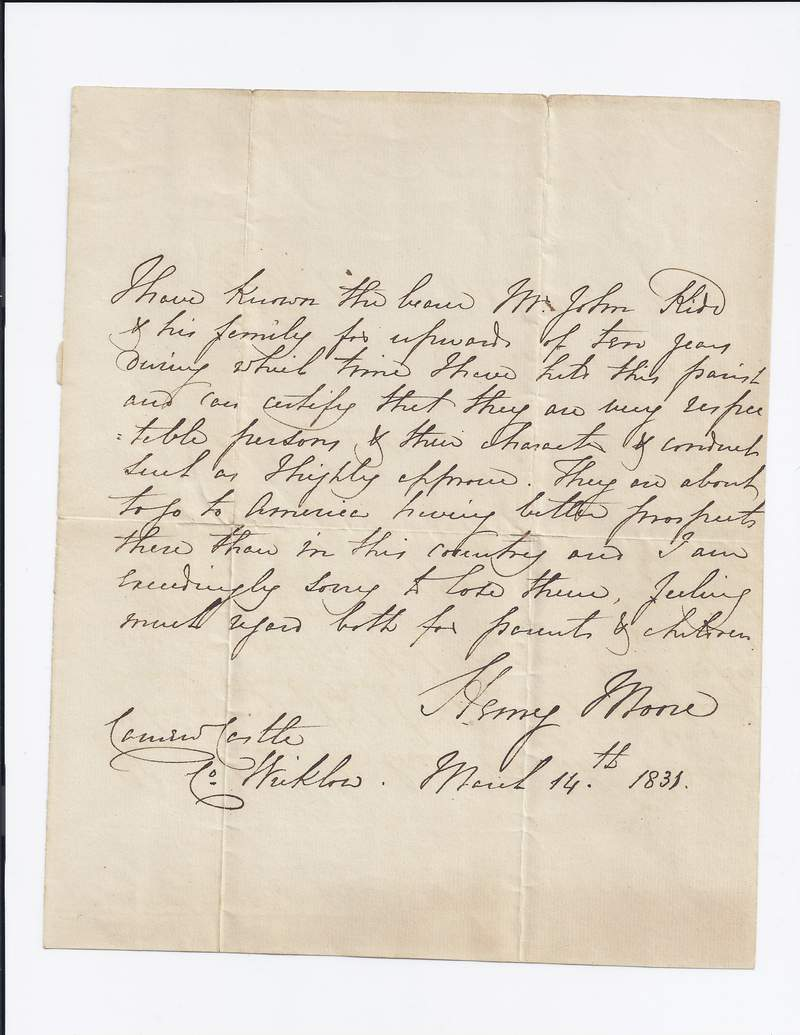 I have known the bearer Mr. John Kidd
& his family for upwards of ten years
During which time I have held this parish
and can certify that they are very respec
=table persons & their character & conduct
such as I highly approve. They are about
to go to America having better prospects
there than in this country and I am
exceedingly sorry to lose them, feeling
much regard both for parents & children
Henry Moore
Carnew Castle
Co. Wicklow. March 14.th 1831.